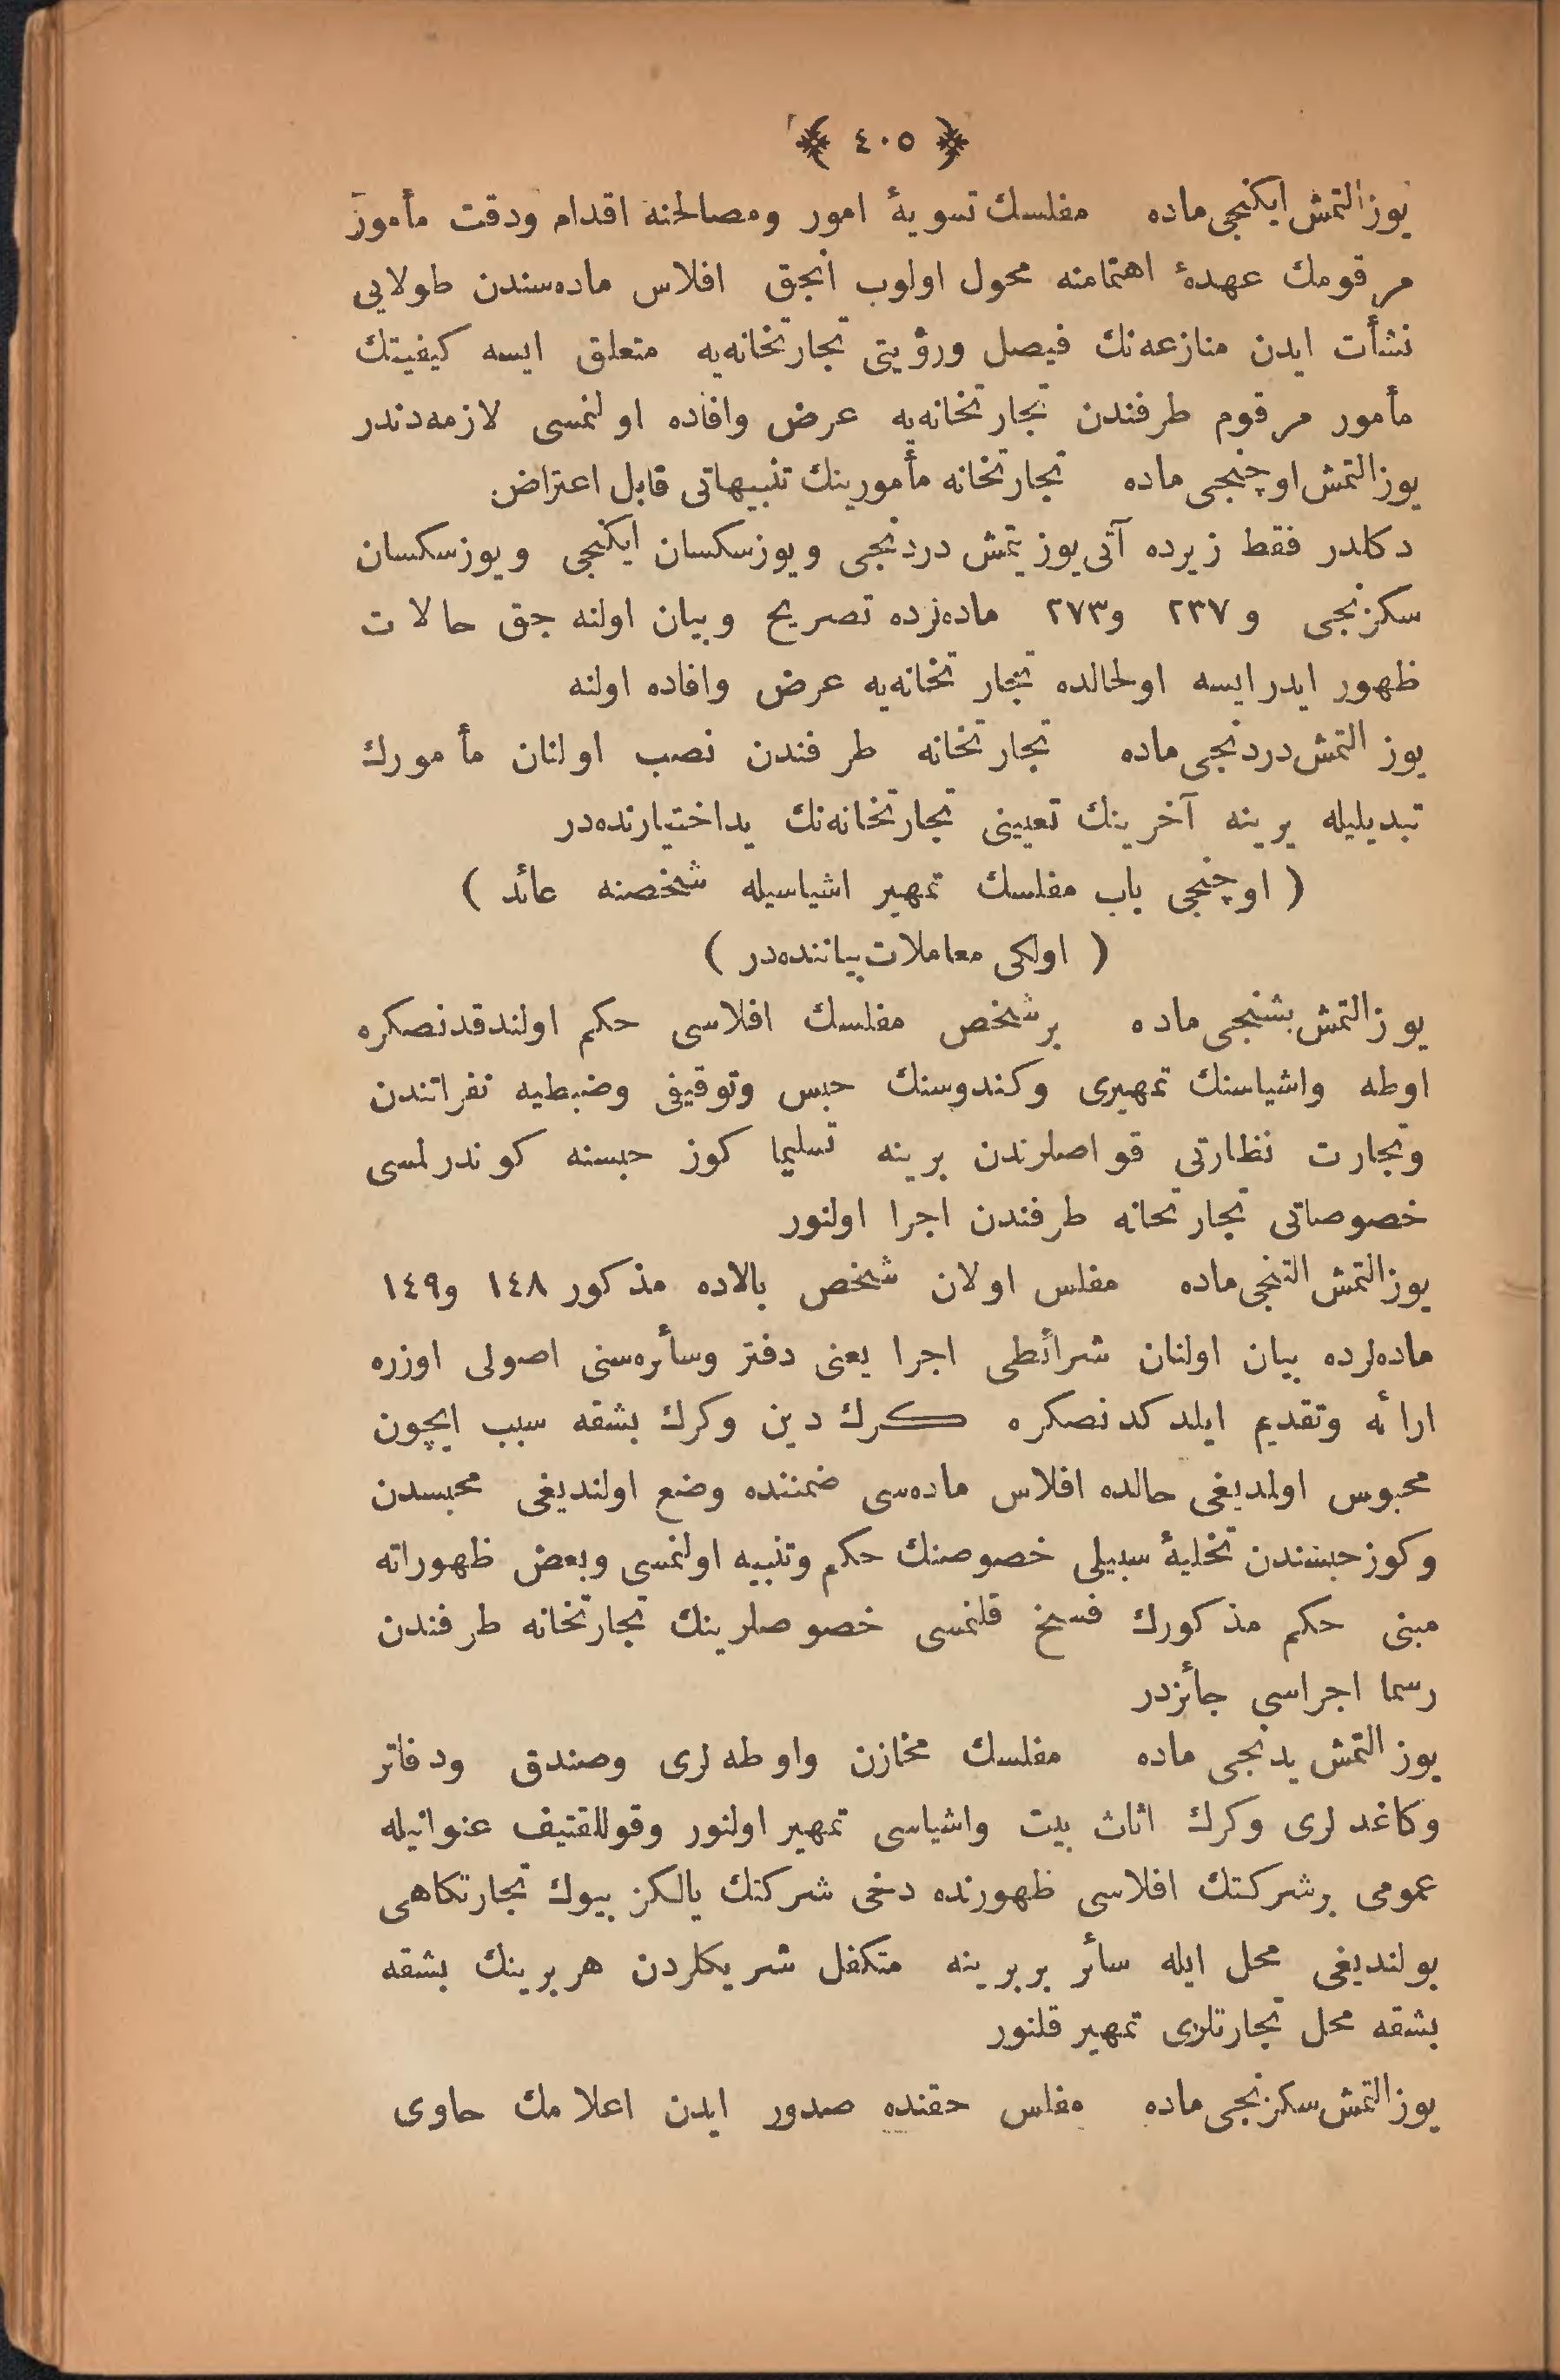 ﴿ ٤٠٥ ﴾
یوز التمش ایكنجی ماده مفلسك تسویهٔ امور ومصالحنه اقدام ودقت مأمور
مرقومك عهدهٔ اهتمامنه محول اولوب انجق افلاس ماده‌سندن طولایی
نشأت ایدن منازعه‌نك فیصل ورؤیتی تجارتخانه‌یه متعلق ایسه كیفیتك
مأمور مرقوم طرفندن تجارتخانه‌یه عرض وافاده اولنمسی لازمه‌دندر
یوز التمش اوچنجی ماده تجارتخانه مأمورینك تنبیهاتی قابل اعتراض
دكلدر فقط زیرده آتی یوز یتمش دردنجی ویوز سكسان ایكنجی ویوز سكسان
سكزنجی و ٢٣٧ و٢٧٣ ماده‌لرده تصریح وبیان اولنه جق حالات
ظهور ایدر ایسه اولحالده تجارتخانه‌یه عرض وافاده اولنه
یوز التمش دردنجی ماده تجارتخانه طرفندن نصب اولنان مأمورك
تبدیلیله یرینه آخرینك تعیینی تجارتخانه‌نك ید اختیارنده‌در
( اوچنجی باب مفلسك تمهیر اشیاسیله شخصنه عائد )
( اولكی معاملات بیاننده‌در )
یوز التمش بشنجی ماده بر شخص مفلسك افلاسی حكم اولندقدنصكره
اوطه واشیاسنك تمهیری وكندوسنك حبس وتوقیفی وضبطیه نفراتندن
وتجارت نظارتی قواصلرندن برینه تسلیما كوز حبسنه كوندرلمسی
خصوصاتی تجارتخانه طرفندن اجرا اولنور
یوز التمش التنجی ماده مفلس اولان شخص بالاده مذكور ١٤٨ و١٤٩
ماده‌لرده بیان اولنان شرائطی اجرا یعنی دفتر وسائره‌سنی اصولی اوزره
ارائه وتقدیم ایلدكدنصكره كرك دین وكرك بشقه سبب ایچون
محبوس اولمدیغی حالده افلاس ماده‌سی ضمننده وضع اولندیغی محبسدن
وكوز حبسندن تخلیهٔ سبیلی خصوصنك حكم وتنبیه اولنمسی وبعض ظهوراته
مبنی حكم مذكورك فسخ قلنمسی خصوصلرینك تجارتخانه طرفندن
رسما اجراسی جائزدر
یوز التمش یدنجی ماده مفلسك مخازن واوطه لری وصندق ودفاتر
وكاغدلری وكرك اثاث بیت واشیاسی تمهیر اولنور وقوللقتیف عنوانیله
عمومی بر شركتك افلاسی ظهورنده دخی شركتك یالكز بیوك تجارتكاهی
بولندیغی محل ایله سائر بربرینه متكفل شریكلردن هر برینك بشقه
بشقه محل تجارتلری تمهیر قلنور
یوز التمش سكزنجی ماده مفلس حقنده صدور ایدن اعلامك حاوی